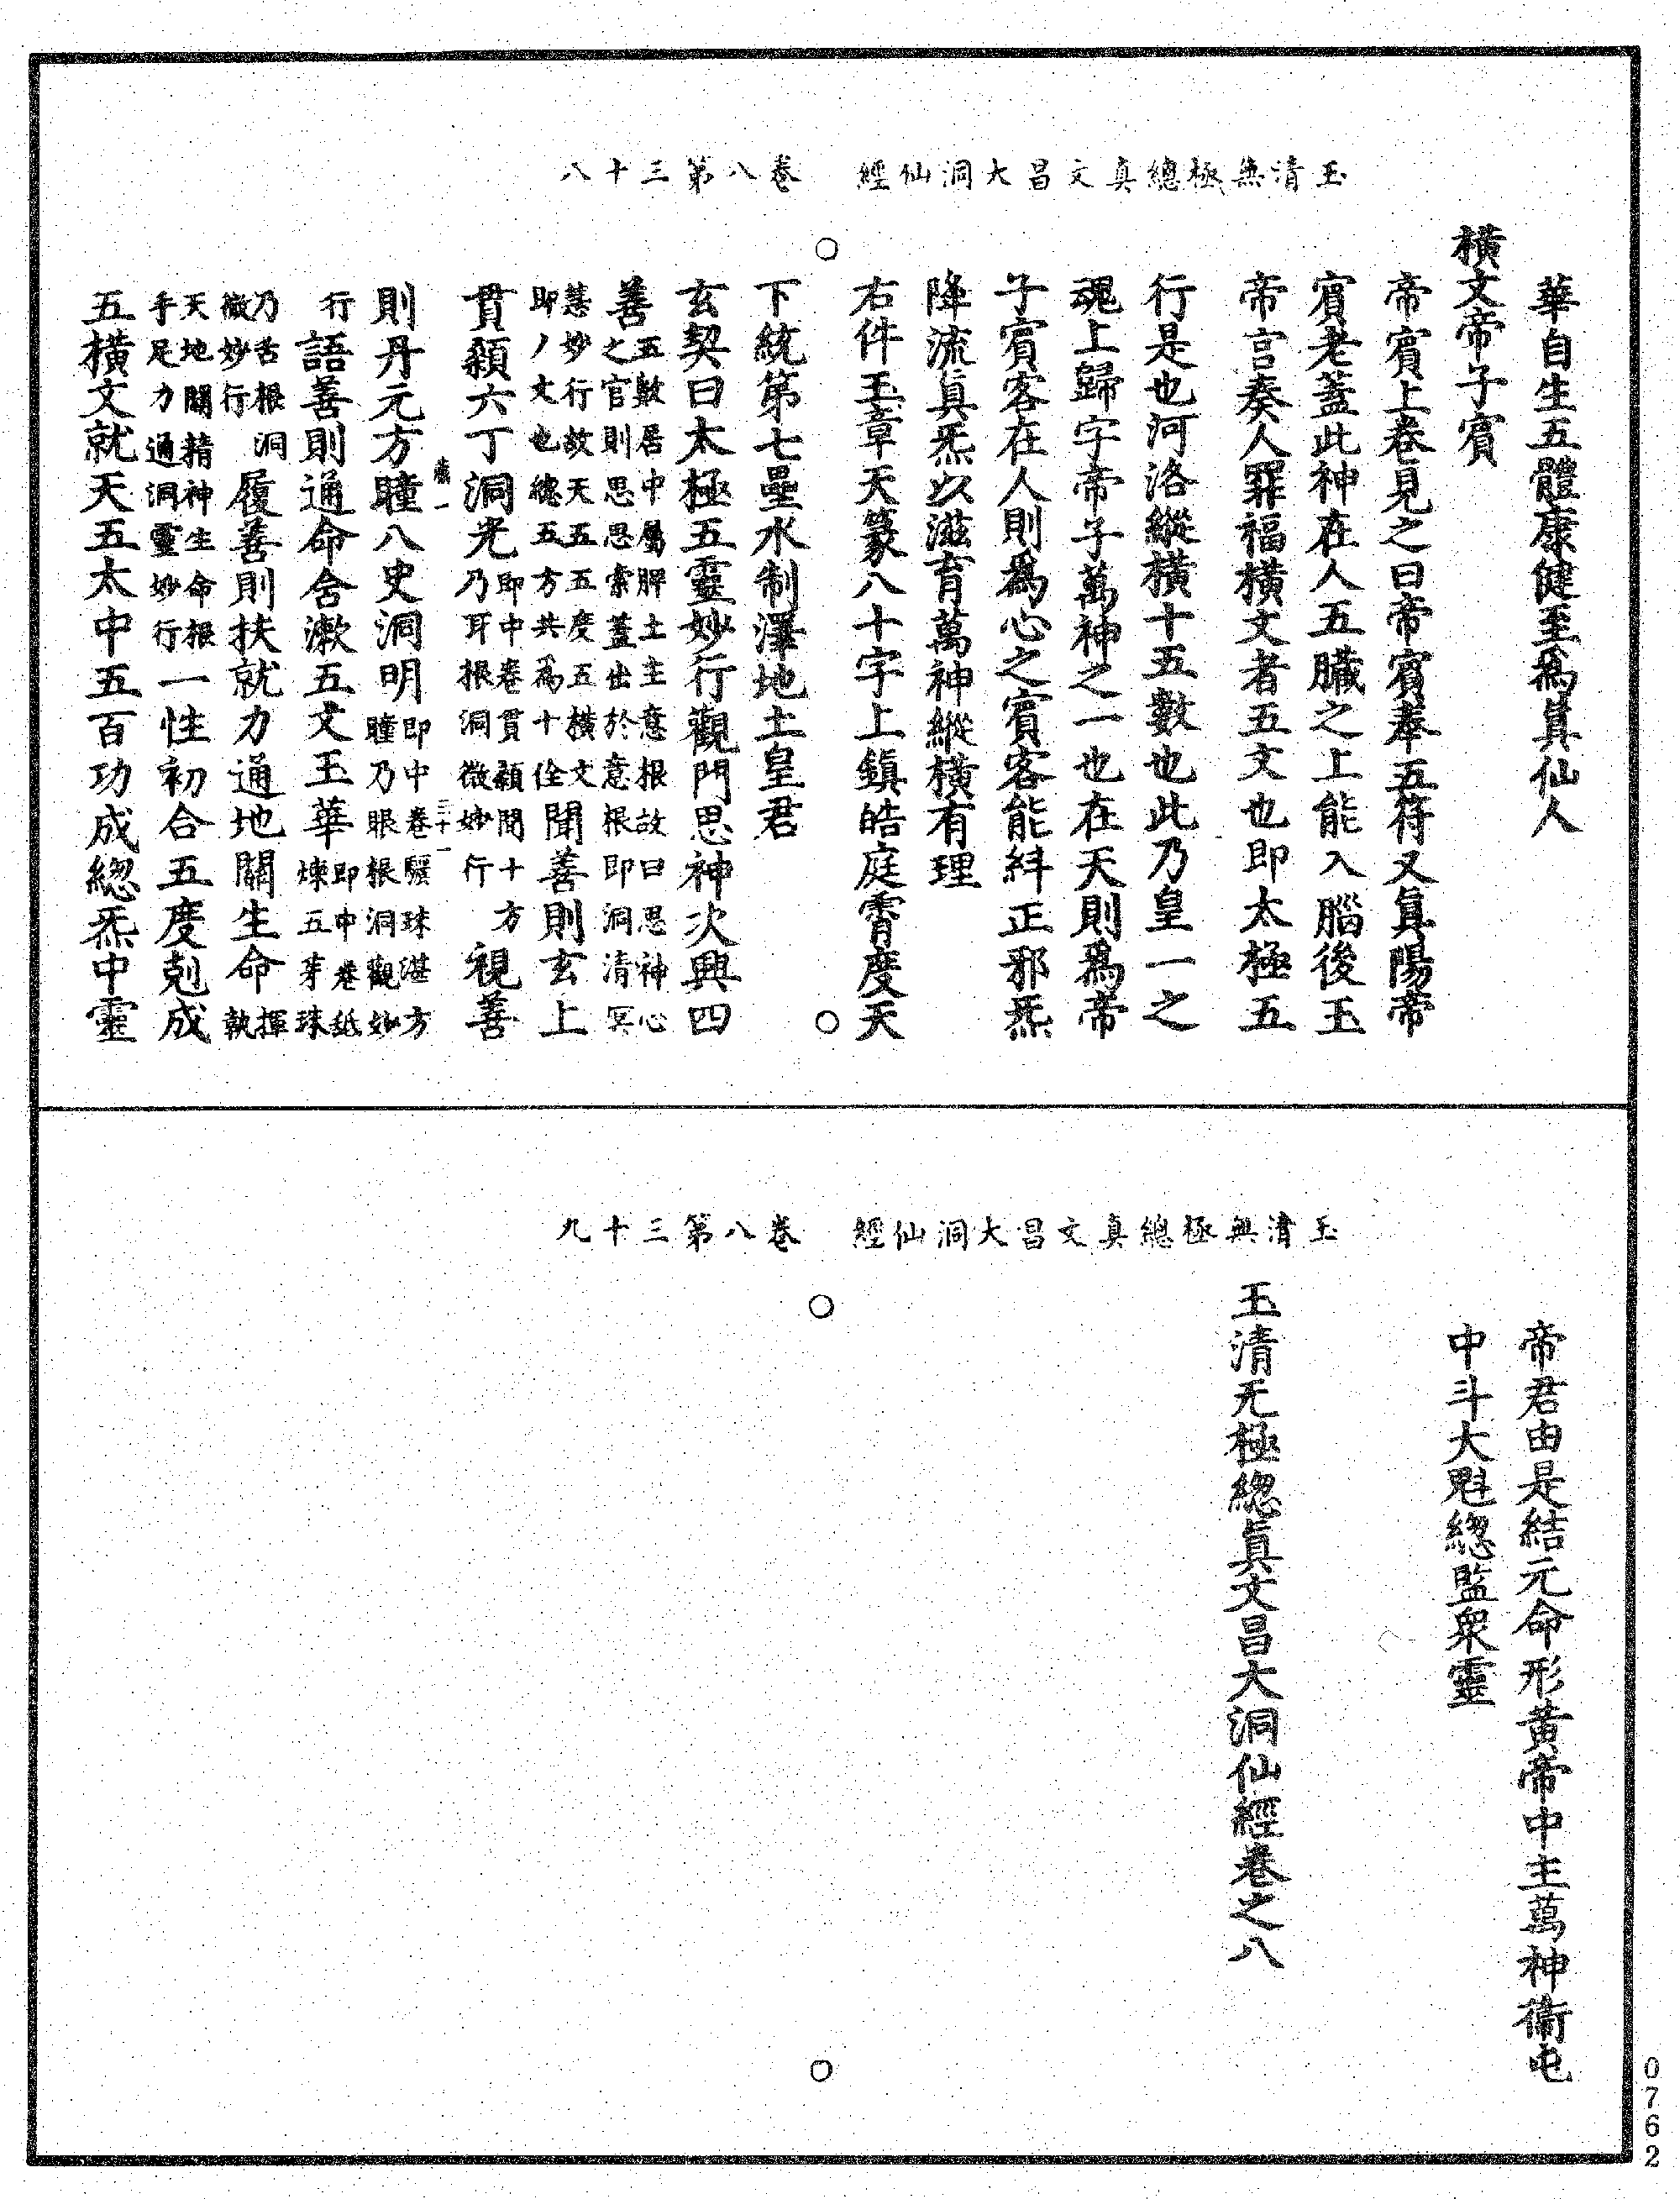 玉清無極總真文昌大洞仙經　卷八第三十八
華自生五體康健至爲眞仙人
橫文帝子賓
帝賓上卷見之曰帝賓奉五符又眞陽帝
賓老蓋此神在人五臟之上能入腦後玉
帝宮奏人罪福橫文者五文也即太極五
行是也河洛縱橫十五數也此乃皇一之
魂上歸字帝子萬神之一也在天則爲帝
子賓客在人則爲心之賓客能糾正邪炁
降流眞炁以滋育萬神縱橫有理
右件玉章天篆八十字上鎮皓庭霄度天
下統第七壘水制澤地土皇君
玄契曰太極五靈妙行觀門思神次興四
善五數居中屬脾土主意根故曰思神心
之官則思思索蓋出於意根即洞清冥
慧妙行故天五五度五橫文
即ノ文也總五方共爲十佺聞善則玄上
貫纇六丁洞光即中卷貫纇聞十方
乃耳根洞微妙行視善
則丹元方瞳八史洞明即中卷驪珠湛方
瞳乃眼根洞觀妙
行語善則通命舍漱五文玉華即中卷舐
煉五芽珠
乃舌根洞
微妙行履善則扶就力通地關生命揮
執
天地關精神生命根
手足力通洞靈妙行一性初合五度剋成
五橫文就天五太中五百功成緫炁中靈
玉清無極總真文昌大洞仙經　卷八第三十九
帝君由是結元命形黃帝中主萬神衞屯
中斗大魁緫監衆靈
玉清无極緫眞文昌大洞仙經卷之八
0762